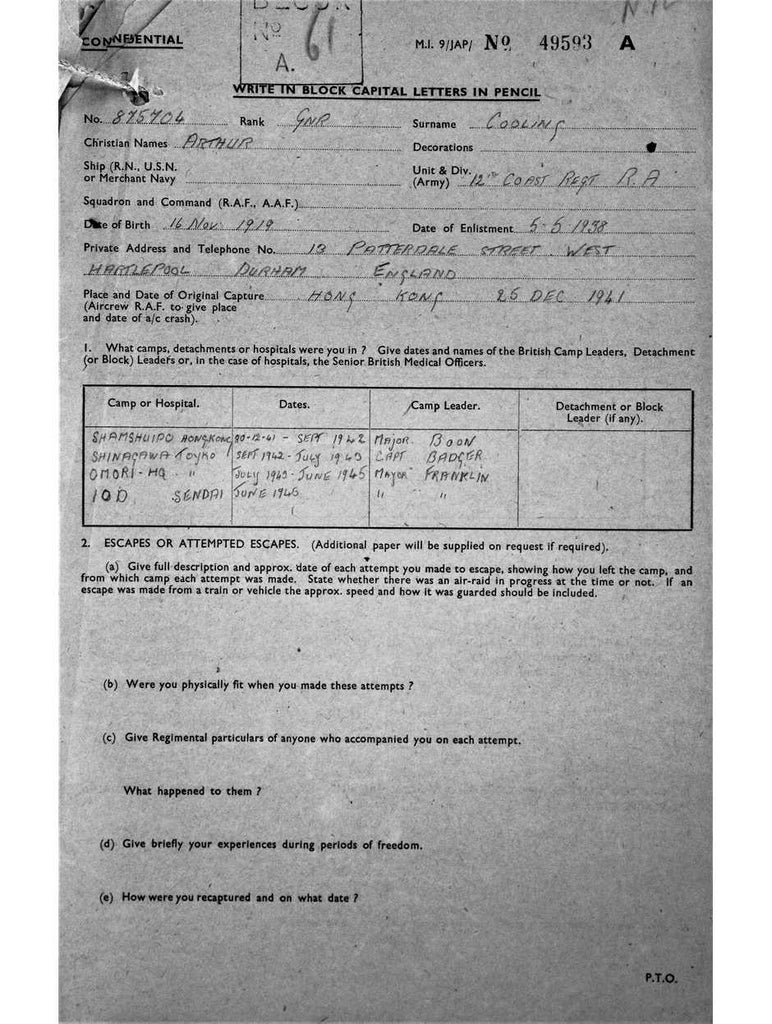 CONFIDENTIAL
BLOCK
Nº 61
A.
M.I. 9/JAP/ Nº 49593 A
WRITE IN BLOCK CAPITAL LETTERS IN PENCIL
No. 875704 Rank GNR Surname COOLING
Christian Names ARTHUR Decorations
Ship (R.N., U.S.N. or Merchant Navy
Unit & Div. (Army) 12TH COAST REGT R.A
Squadron and Command (R.A.F., A.A.F.)
Date of Birth 16 Nov. 1919 Date of Enlistment 5-5 1938
Private Address and Telephone No. 13 PATTERDALE STREET. WEST
HARTLEPOOL DURHAM ENGLAND
Place and Date of Original Capture HONG KONG 25 DEC 1941
(Aircrew R.A.F. to give place
and date of a/c crash).
1. What camps, detachments or hospitals were you in ? Give dates and names of the British Camp Leaders, Detachment
(or Block) Leaders or, in the case of hospitals, the Senior British Medical Officers.
Camp or Hospital. Dates. Camp Leader. Detachment or Block
Leader (if any).
SHAMSHUIPO HONGKONG 30-12-41 - SEPT 1942 Major. BOON
SHINAGAWA TOYKO SEPT 1942 - JULY 1943 CAPT BADGER
OMORI - HQ " JULY 1943 - JUNE 1945 MAYOR FRANKLIN
10D SENDAI JUNE 1945 " "
2. ESCAPES OR ATTEMPTED ESCAPES. (Additional paper will be supplied on request if required).
(a) Give full description and approx. date of each attempt you made to escape, showing how you left the camp, and
from which camp each attempt was made. State whether there was an air-raid in progress at the time or not. If an
escape was made from a train or vehicle the approx. speed and how it was guarded should be included.
(b) Were you physically fit when you made these attempts ?
(c) Give Regimental particulars of anyone who accompanied you on each attempt.
What happened to them ?
(d) Give briefly your experiences during periods of freedom.
(e) How were you recaptured and on what date ?
P.T.O.